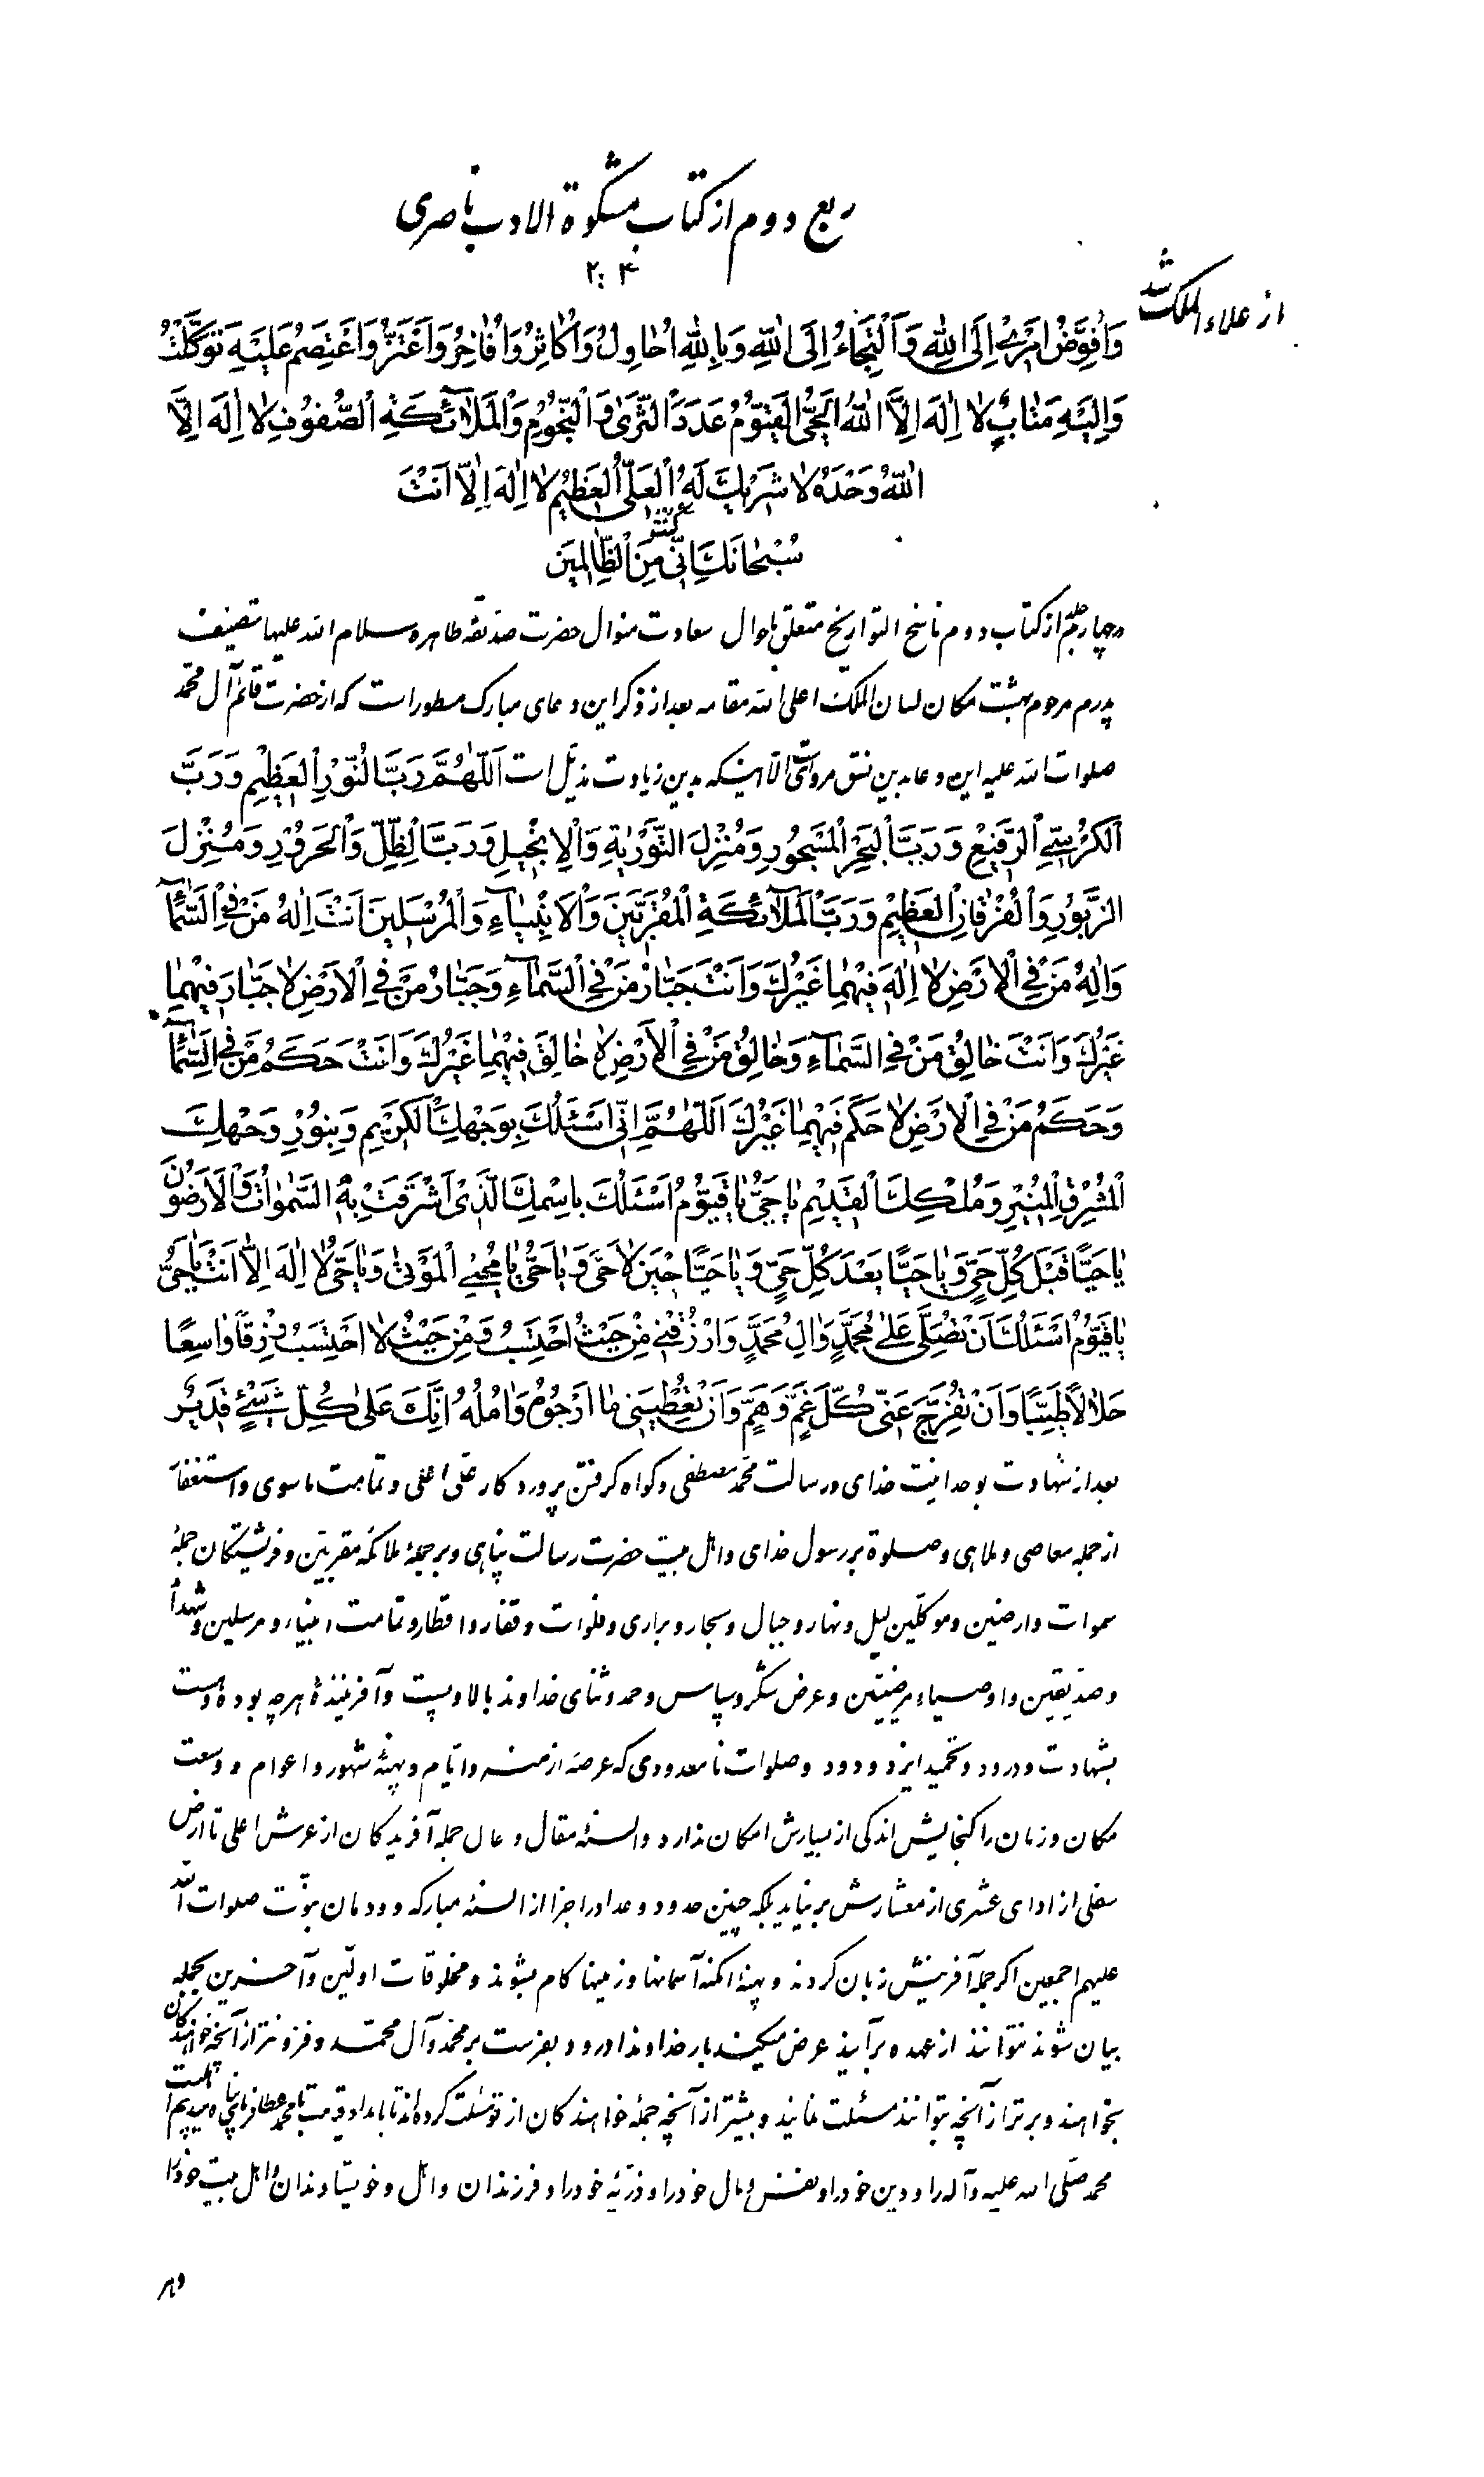 ربع دوم از کتاب مشکوة الادب ناصری
۲۰۴
از علاء الملک شد
وَاُفَوِّضُ اَمْرِی اِلَی اللهِ وَاَلْتَجَاءُ اِلَی اللهِ وَبِاللهِ اُحٰاوِلُ وَاُکٰاثِرُ وَاُفٰاخِرُ وَاَعْتَزُّ وَاَعْتَصِمُ عَلَیْهِ تَوَکَّلْتُ
وَاِلَیْهِ مَتٰابِ لٰا اِلٰهَ اِلَّا اللهُ الْحَیُّ الْقَیُّومُ عَدَدَ الثَّرٰی وَالنُّجُومِ وَالْمَلٰائِکَةِ الصُّفُوفِ لٰا اِلٰهَ اِلَّا
اللهُ وَحْدَهُ لٰا شَرِیكَ لَهُ الْعَلِیُّ الْعَظِیمُ لٰا اِلٰهَ اِلّٰا اَنْتَ
سُبْحٰانَكَ اِنّی کُنْتُ مِنَ الظّٰالِمینَ
در چهارجلد از کتاب دوم ناسخ التواریخ متعلق باحوال سعادت منوال حضرت صدیقه طاهره سلام الله علیها تصنیف
پدرم مرحوم بهشت مکان لسان الملک اعلی الله مقامه بعد از ذکر این دعای مبارک مسطور است که از حضرت قائم آل محمد
صلوات الله علیه این دعا بدین نسق مرویست الا اینکه بدین زیادت مذیّل است اَللّٰهُمَّ رَبَّ النُّورِ الْعَظِیمِ وَرَبَّ
الْکُرْسِیِّ الرَّفِیعِ وَرَبَّ الْبَحْرِ الْمَسْجُورِ وَمُنْزِلَ التَّوْرٰیةِ وَالْاِنْجِیلِ وَرَبَّ الظِّلِّ وَالْحَرُورِ وَمُنْزِلَ
الزَّبُورِ وَالْفُرْقٰانِ الْعَظِیمِ وَرَبَّ الْمَلٰائِکَةِ الْمُقَرَّبِینَ وَالْاَنْبِیٰاءِ وَالْمُرْسَلِینَ اَنْتَ اِلٰهُ مَنْ فِی السَّمٰاءِ
وَاِلٰهُ مَنْ فِی الْاَرْضِ لٰا اِلٰهَ فِیهِمٰا غَیْرُكَ وَاَنْتَ جَبّٰارُ مَنْ فِی السَّمٰاءِ وَجَبّٰارُ مَنْ فِی الْاَرْضِ لٰا جَبّٰارَ فِیهِمٰا
غَیْرُكَ وَاَنْتَ خٰالِقُ مَنْ فِی السَّمٰاءِ وَخٰالِقُ مَنْ فِی الْاَرْضِ لٰا خٰالِقَ فِیهِمٰا غَیْرُكَ وَاَنْتَ حَکَمُ مَنْ فِی السَّمٰاءِ
وَحَکَمُ مَنْ فِی الْاَرْضِ لٰا حَکَمَ فِیهِمٰا غَیْرُكَ اَللّٰهُمَّ اِنّی اَسْئَلُكَ بِوَجْهِكَ الْکَرِیمِ وَبِنُورِ وَجْهِكَ
الْمُشْرِقِ الْمُنِیرِ وَمُلْکِكَ الْقَدِیمِ یٰا حَیُّ یٰا قَیُّومُ اَسْئَلُكَ بِاسْمِكَ الَّذِی اَشْرَقَتْ بِهِ السَّمٰوٰاتُ وَالْاَرَضُونَ
یٰا حَیًّا قَبْلَ کُلِّ حَیٍّ وَیٰا حَیًّا بَعْدَ کُلِّ حَیٍّ وَیٰا حَیًّا حِینَ لٰا حَیَّ وَیٰا حَیُّ یٰا مُحْیِیَ الْمَوْتٰی وَیٰا حَیُّ لٰا اِلٰهَ اِلّٰا اَنْتَ یٰا حَیُّ
یٰا قَیُّومُ اَسْئَلُكَ اَنْ تُصَلِّیَ عَلٰی مُحَمَّدٍ وَاٰلِ مُحَمَّدٍ وَارْزُقْنِی مِنْ حَیْثُ اَحْتَسِبُ وَمِنْ حَیْثُ لٰا اَحْتَسِبُ رِزْقًا وٰاسِعًا
حَلٰالًا طَیِّبًا وَاَنْ تُفَرِّجَ عَنّی کُلَّ غَمٍّ وَهَمٍّ وَاَنْ تُعْطِیَنی مٰا اَرْجُوهُ وَاٰمُلُهُ اِنَّكَ عَلٰی کُلِّ شَیْءٍ قَدِیرٌ
بعد از شهادت بوحدانیت خدای ورسالت محمد مصطفی وکواه کرفتن پروردکار علی اعلی وتمامت ماسوی واستغفار
از جمله معاصی وملاهی وصلوة بر رسول خدای واهل بیت حضرت رسالت پناهی وبر جملهٔ ملائکه مقربین وفرشتکان جملهٔ
سموات وارضین وموکلین لیل ونهار وجبال وبحار وبراری وفلوات وقفار واقطار وتمامت انبیاء ومرسلین وشهدا
وصدیقین واوصیاء مرضیین وعرض شکر وسپاس وحمد وثنای خداوند بالا وپست وآفرینندهٔ هرچه بوده وهست
بشهادت ودرود وتحمید ایزد ودود وصلوات نامعدودی که عرصه ازمنه وایام وپهنهٔ شهور واعوام ووسعت
مکان وزمان را کنجایش اندکی از بسیارش امکان ندارد والسنهٔ مقال وحال جمله آفریدکان از عرش اعلی تا ارض
سفلی از ادای عشری از معشارش بر نیاید بلکه چنین حدود وعداد را جز از السنهٔ مبارکه ودودمان نبوّت صلوات الله
علیهم اجمعین اکر جمله آفرینش زبان کردند وپهنهٔ امکنه آسمانها وزمینها کام بشوند ومخلوقات اولین وآخرین بجمله
بیان شوند نتوانند از عهده برآیند عرض میکند بار خداوندا درود بفرست بر محمد وآل محمد وفزونتر از آنچه خواهندکان
بخواهند وبرتر از آنچه بتوانند مسئلت نمایند وبیشتر از آنچه جملهٔ خواهندکان از تو مسئلت کرده‌اند تا بامداد قیامت بمحمد عطا فرمای
محمد صلی الله علیه وآله را ودین خود را ونفس ومال خود را وذرّیه خود را وفرزندان واهل وخویشاوندان واهل بیت خود را
وهر